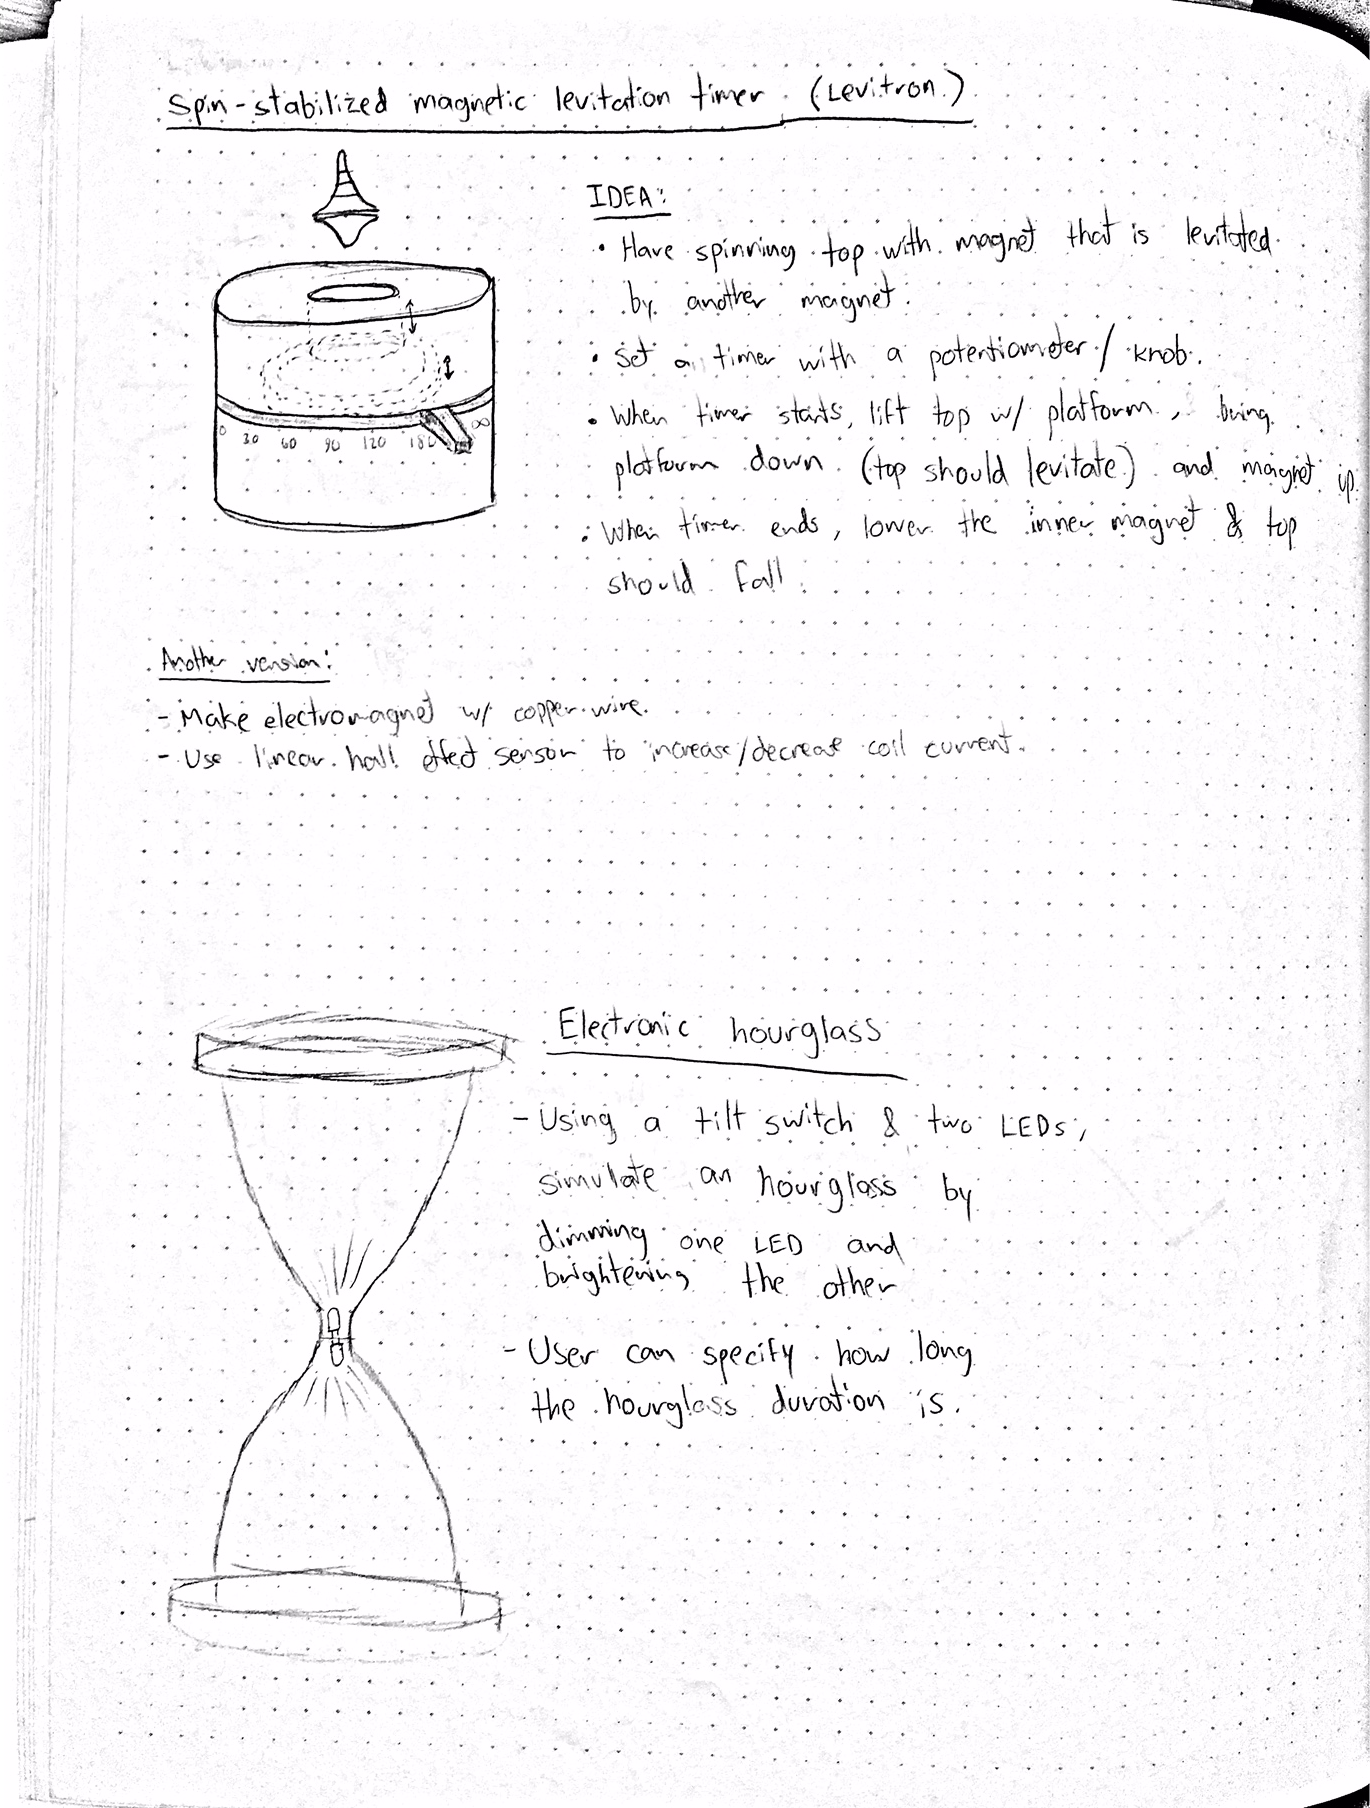 Spin-stabilized magnetic levitation timer (Levitron)
IDEA:
• Have spinning top with magnet that is levitated
by another magnet.
• Set a timer with a potentiometer / knob.
0 30 60 90 120 180 ∞
• When timer starts, lift top w/ platform, bring
platform down (top should levitate) and magnet up.
• When timer ends, lower the inner magnet & top
should fall.
Another version:
- Make electromagnet w/ copper wire.
- Use linear hall effect sensor to increase/decrease coil current.
Electronic hourglass
- Using a tilt switch & two LEDs,
simulate an hourglass by
dimming one LED and
brightening the other
- User can specify how long
the hourglass duration is.